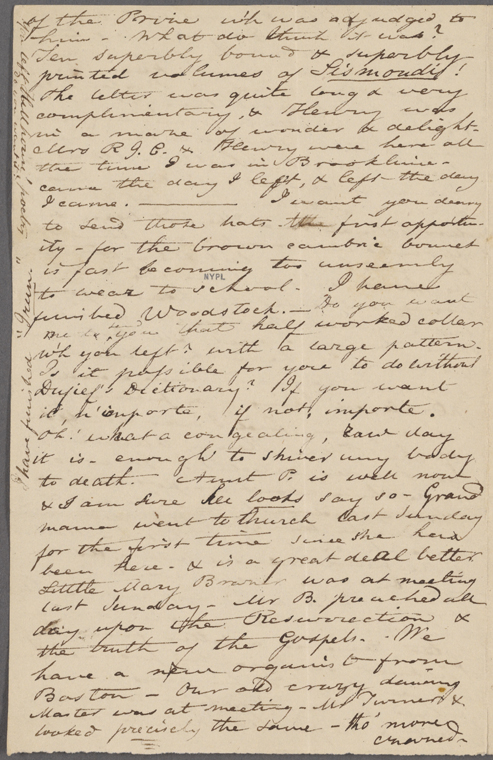 of the Prize wh was adjudged to
him - What do think it was?
Ten superbly bound & superbly
printed volumes of Sismondi!
The letter was quite long & very
complimentary, & Henry was
in a maze of wonder & delight -
Mrs R. J. C. & Henry were here all
the time I was in Brookline -
came the day I left, & left the day
I came. ——— I want you deary
to send those hats the first opportu-
ity - for the brown cambric bonnet
is fast becoming too unseemly
NYPL
to wear to school. I have
finished Woodstock. - Do you want
me to you that half worked collar
wh you left? with a large pattern -
Is it possible for you to do without
Dufief's Dictionary? If you want
it, n'importe, if not, importe.
Oh! what a congealing, raw day
it is - enough to shiver my body
to death. Aunt P. is well now
& I am sure she looks say so - Grand
mama went to Church last Sunday
for the first time since she has
been here - & is a great deal better
Little Mary Brown was at meeting
last Sunday - Mr B. preached all
day upon the Resurrection &
the truth of the Gospels. - We
have a new organist from
Boston - Our old crazy dancing
Master was at meeting - Mr Turner &
looked precisely the same - tho' more
I have finished